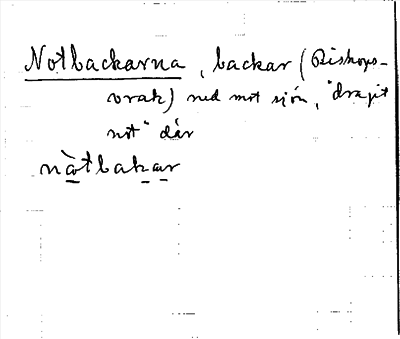 Notbackarna, backar (Biskops-
vrak) ned mot sjön, "dragit
not" där
nòtbakar